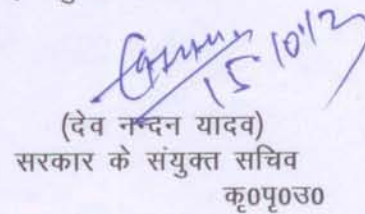 15/10/12
(देव नन्दन यादव)
सरकार के संयुक्त सचिव
कृ0पृ0उ0